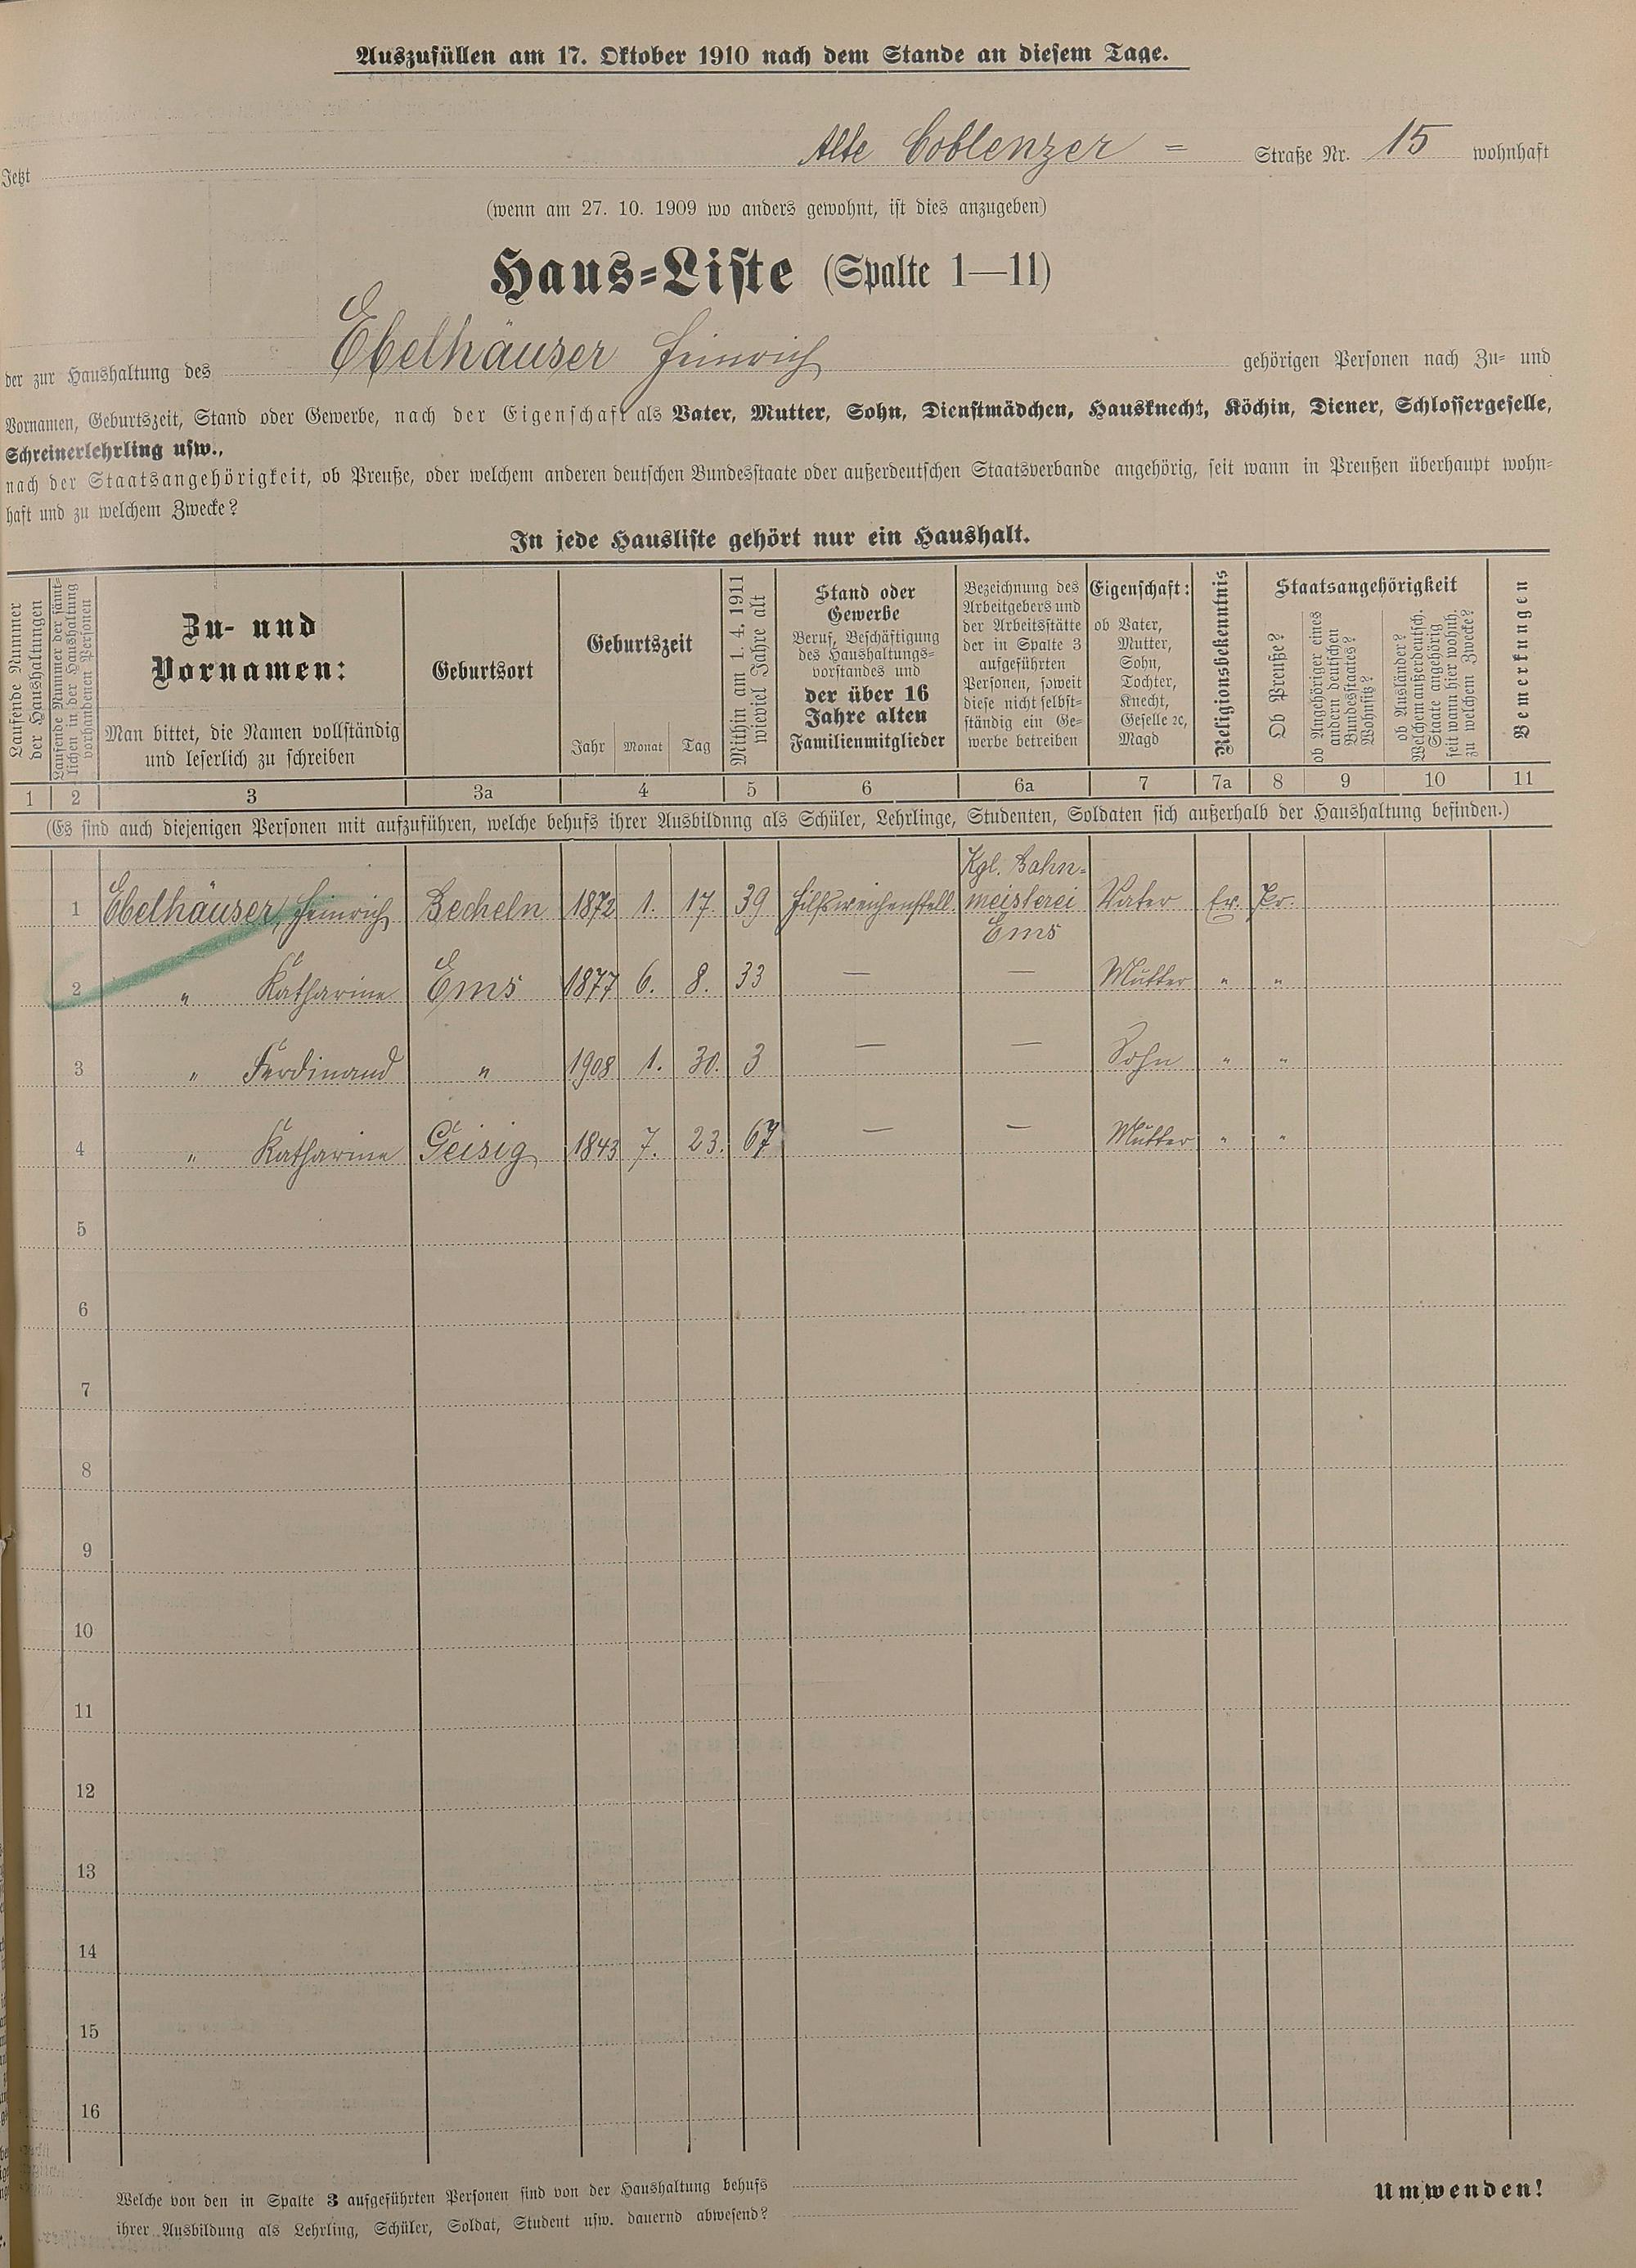 Auszufüllen am 17. Oktober 1910 nach dem Stande an diesem Tage.
Jetzt Alte Coblenzer = Straße Nr. 15 wohnhaft
(wenn am 27. 10. 1909 wo anders gewohnt, ist dies anzugeben)
Haus-Liste (Spalte 1—11)
der zur Haushaltung des Ebelhäuser Heinrich gehörigen Personen nach Zu- und
Vornamen, Geburtszeit, Stand oder Gewerbe, nach der Eigenschaft als Vater, Mutter, Sohn, Dienstmädchen, Hausknecht, Köchin, Diener, Schlossergeselle,
Schreinerlehrling usw.,
nach der Staatsangehörigkeit, ob Preuße, oder welchem anderen deutschen Bundesstaate oder außerdeutschen Staatsverbande angehörig, seit wann in Preußen überhaupt wohn-
haft und zu welchem Zwecke?
In jede Hausliste gehört nur ein Haushalt.
Laufende Nummer
der Haushaltungen
Laufende Nummer der sämt-
lichen in der Haushaltung
vorhandenen Personen
Zu- und
Vornamen:
Man bittet, die Namen vollständig
und leserlich zu schreiben
Geburtsort
Geburtszeit
Jahr Monat Tag
Mithin am 1. 4. 1911
wieviel Jahre alt
Stand oder
Gewerbe
Beruf, Beschäftigung
des Haushaltungs-
vorstandes und
der über 16
Jahre alten
Familienmitglieder
Bezeichnung des
Arbeitgebers und
der Arbeitsstätte
der in Spalte 3
aufgeführten
Personen, soweit
diese nicht selbst-
ständig ein Ge-
werbe betreiben
Eigenschaft:
ob Vater,
Mutter,
Sohn,
Tochter,
Knecht,
Geselle ꝛc,
Magd
Religionsbekenntnis
Staatsangehörigkeit
Ob Preuße?
ob Angehöriger eines
andern deutschen
Bundesstaates?
Wohnsitz?
ob Ausländer?
Welchem außerdeutsch.
Staate angehörig
seit wann hier wohnh.
zu welchem Zwecke?
Bemerkungen
1 2 3 3a 4 5 6 6a 7 7a 8 9 10 11
(Es sind auch diejenigen Personen mit aufzuführen, welche behufs ihrer Ausbildung als Schüler, Lehrlinge, Studenten, Soldaten sich außerhalb der Haushaltung befinden.)
1 Ebelhäuser, Heinrich Becheln 1872 1. 17. 39 Hilfsweichenstell Kgl. Bahn=
meisterei
Ems Vater Ev. Pr.
2 " Katharine Ems 1877 6. 8. 33 — — Mutter " "
3 " Ferdinand " 1908 1. 30. 3 — — Sohn " "
4 " Katharine Geisig 1843 7. 23. 67 — — Mutter " "
5
6
7
8
9
10
11
12
13
14
15
16
Welche von den in Spalte 3 aufgeführten Personen sind von der Haushaltung behufs
ihrer Ausbildung als Lehrling, Schüler, Soldat, Student usw. dauernd abwesend?
Umwenden!